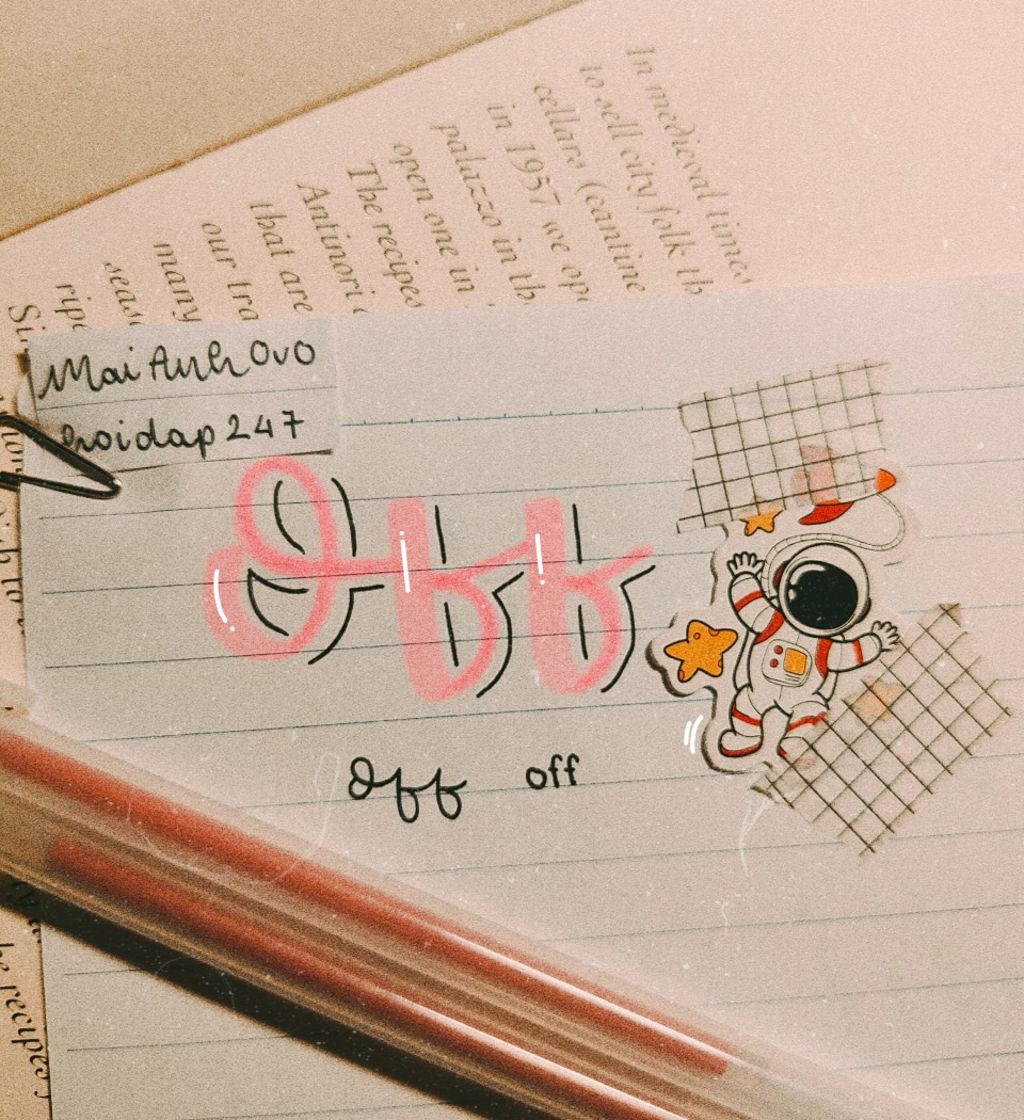 In medieval times
to sell city folk th
cellars (cantine
in 1957 we ope
palazzo in th
open one in
The recipes
Antinori
that are
our tra
many
seas
ripe
Mai Anh OvO
hoidap 247
Off
Off off
he recipes